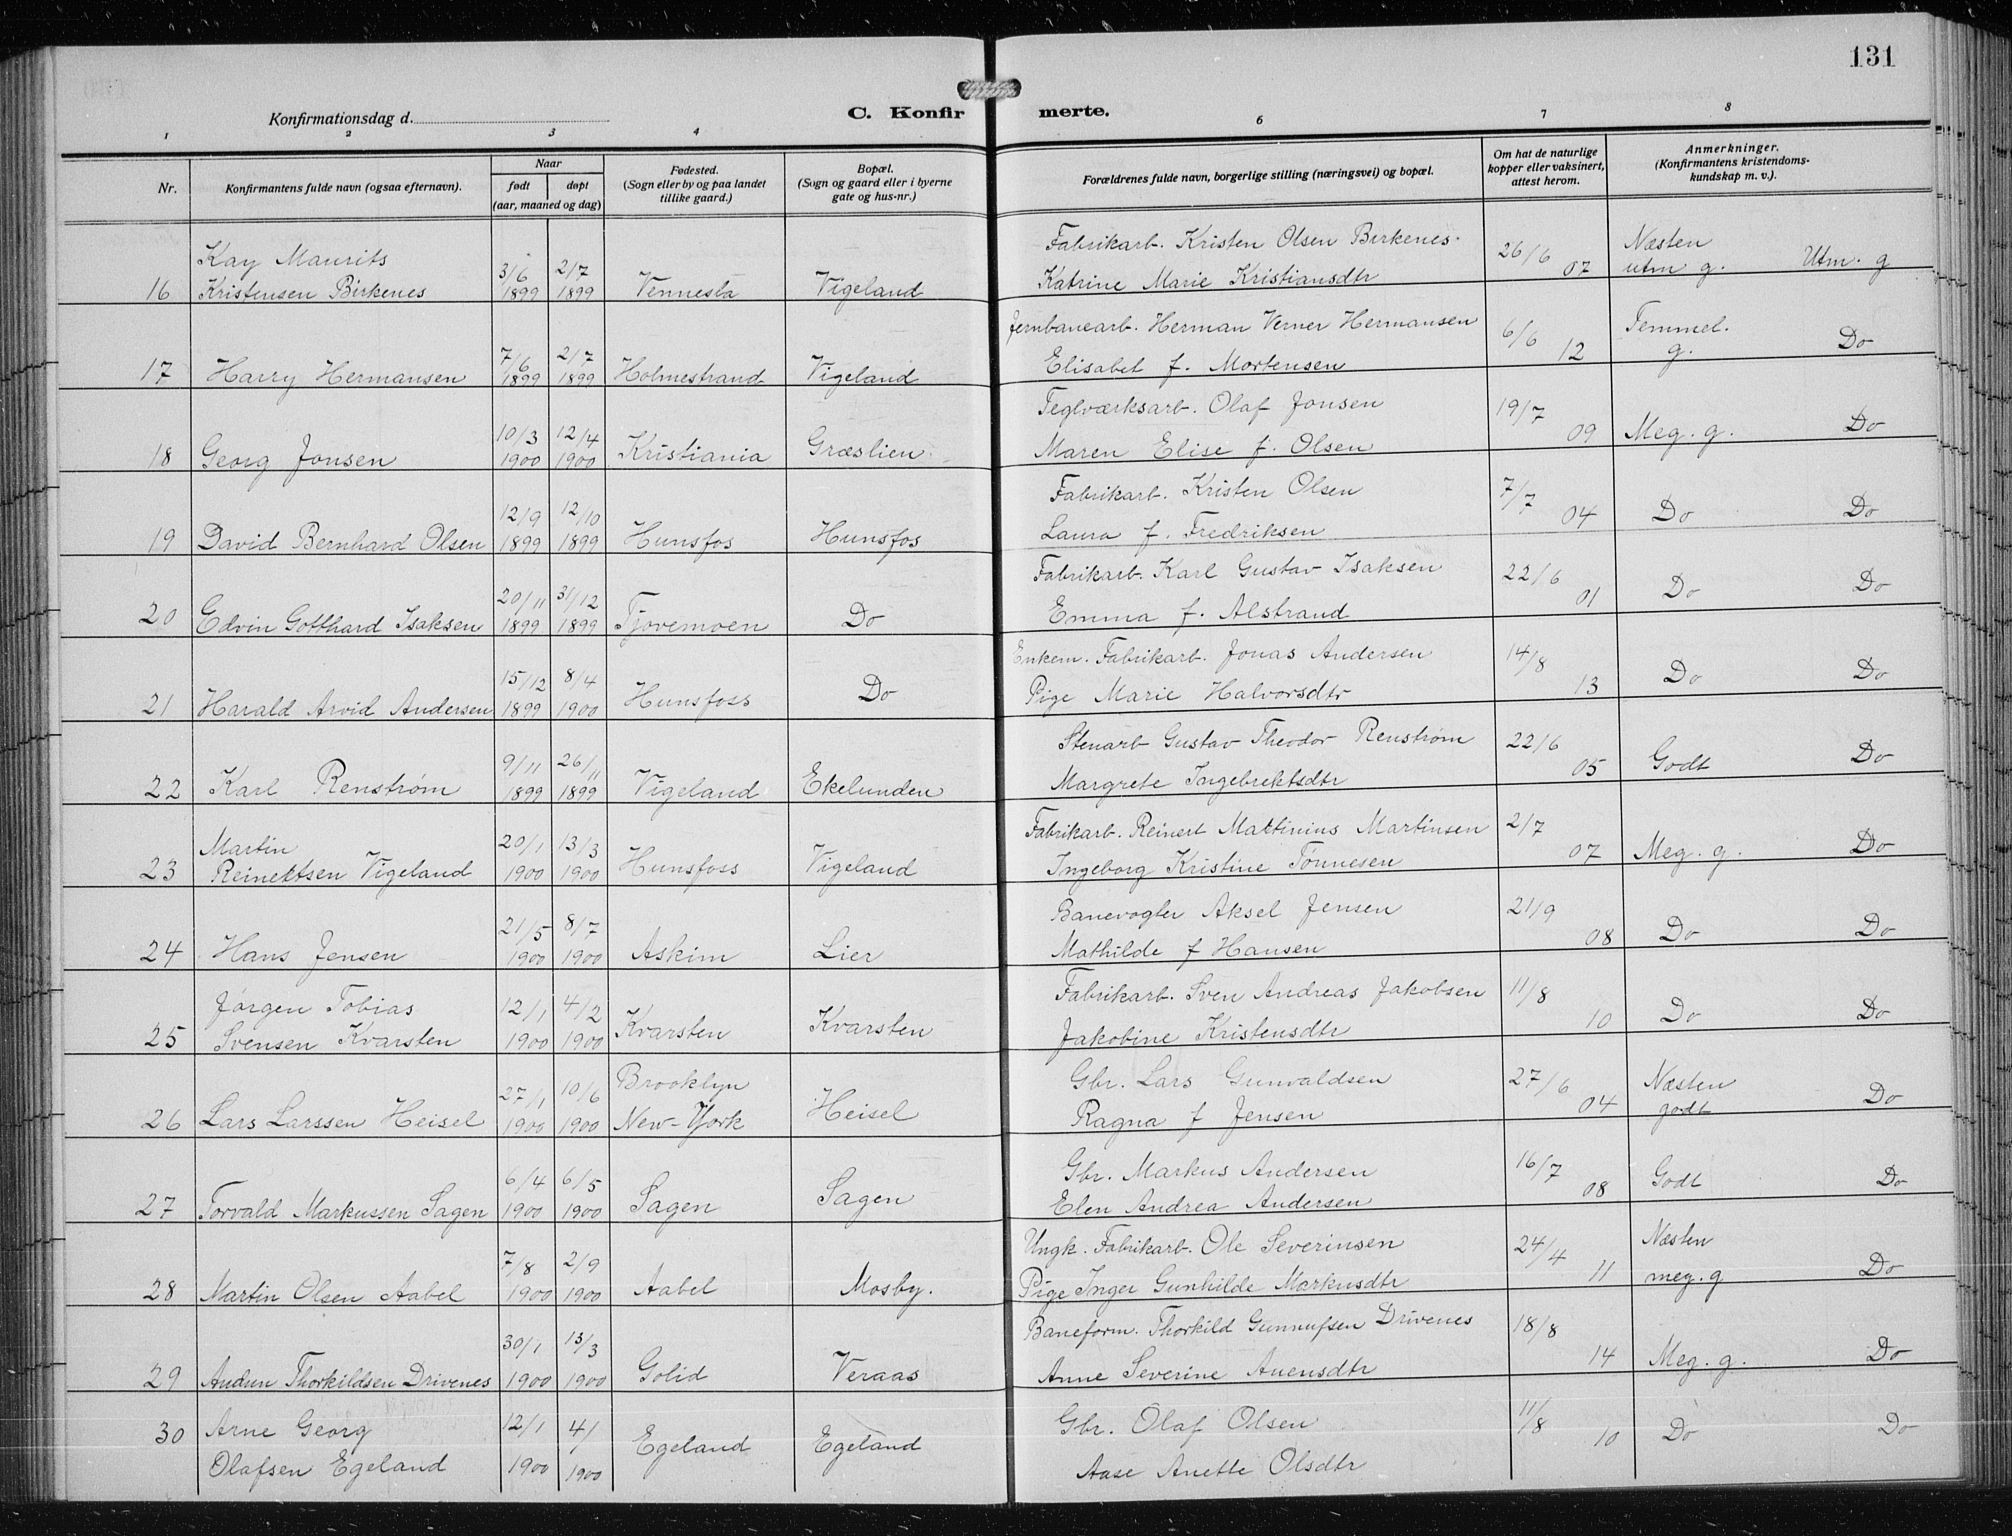 131
Konfirmationsdag d.
C. Konfirmerte.
1 2 3 4 6 7 8
Nr.
Konfirmantens fulde navn (ogsaa efternavn).
Naar
født døpt
(aar, maaned og dag)
Fødested.
(Sogn eller by og paa landet
tillike gaard.)
Bopæl.
(Sogn og gaard eller i byerne
gate og hus-nr.)
Forældrenes fulde navn, borgerlige stilling (næringsvei) og bopæl.
Om hat de naturlige
kopper eller vaksinert,
attest herom.
Anmerkninger.
(Konfirmantens kristendoms-
kundskap m. v.).
Kay Maurits 3/6 2/7 Fabrikarb. Kristen Olsen Birkenes. 26/6 Næsten
16 Kristensen Birkenes 1899 1899 Vennesla Vigeland Katrine Marie Kristiansdtr 07 utm g. Utm. g
7/6 2/7 Jernbanearb. Herman Verner Hermansen 6/6 Temmel.
17 Harry Hermansen 1899 1899 Holmestrand Vigeland Elisabet f. Mortensen 12 g. Do
10/3 12/4 Teglværksarb. Olaf Jonsen 19/7
18 Georg Jonsen 1900 1900 Kristiania Græslien Maren Elise f. Olsen 09 Meg. g. Do
12/9 12/10 Fabrikarb. Kristen Olsen 7/7
19 David Bernhard Olsen 1899 1899 Hunsfos Hunsfos Laura f. Fredriksen 04 Do Do
20/11 31/12 Fabrikarb. Karl Gustav Isaksen 22/6
20 Edvin Gotthard Isaksen 1899 1899 Tjovemoen Do Emma f. Alstrand 01 Do Do
15/12 8/4 Enkem. Fabrikarb. Jonas Andersen 14/8
21 Harald Arvid Andersen 1899 1900 Hunsfoss Do Pige Marie Halvorsdtr 13 Do Do
9/11 26/11 Stenarb Gustav Theodor Renstrøm 22/6
22 Karl Renstrøm 1899 1899 Vigeland Ekelunden Margrete Ingebrektsdtr 05 Godt Do
Martin 20/1 13/3 Fabrikarb. Reinert Mattinius Martinsen 2/7
23 Reinertsen Vigeland 1900 1900 Hunsfoss Vigeland Ingeborg Kristine Tønnesen 07 Meg. g. Do
21/5 8/7 Banevogter Aksel Jensen 21/9
24 Hans Jensen 1900 1900 Askim Lier Mathilde f Hansen 08 Do Do
Jørgen Tobias 12/1 4/2 Fabrikarb. Sven Andreas Jakobsen 11/8
25 Svensen Kvarsten 1900 1900 Kvarsten Kvarsten Jakobine Kristensdtr 10 Do Do
27/1 10/6 Brooklyn Gbr. Lars Gunvaldsen 27/6 Næsten
26 Lars Larssen Heisel 1900 1900 New-York Heisel Ragna f Jensen 04 godt Do
6/4 6/5 Gbr. Markus Andersen 16/7
27 Torvald Markussen Sagen 1900 1900 Sagen Sagen Elen Andrea Andersen 08 Godt Do
7/8 2/9 Ungk. Fabrikarb. Ole Severinsen 24/4 Næsten
28 Martin Olsen Aabel 1900 1900 Aabel Mosby. Pige Inger Gunhilde Markusdtr 11 meg. g Do
30/1 13/3 Baneform. Thorkild Gunnufsen Drivenes 18/8
29 Audun Thorkildsen Drivenes 1900 1900 Golid Veraas Anne Severine Auensdtr 14 Meg. g. Do
30 Arne Georg 12/1 4/ Gbr. Olaf Olsen 11/8
Olafsen Egeland 1900 1900 Egeland Egeland Aase Anette Olsdtr 10 Do Do